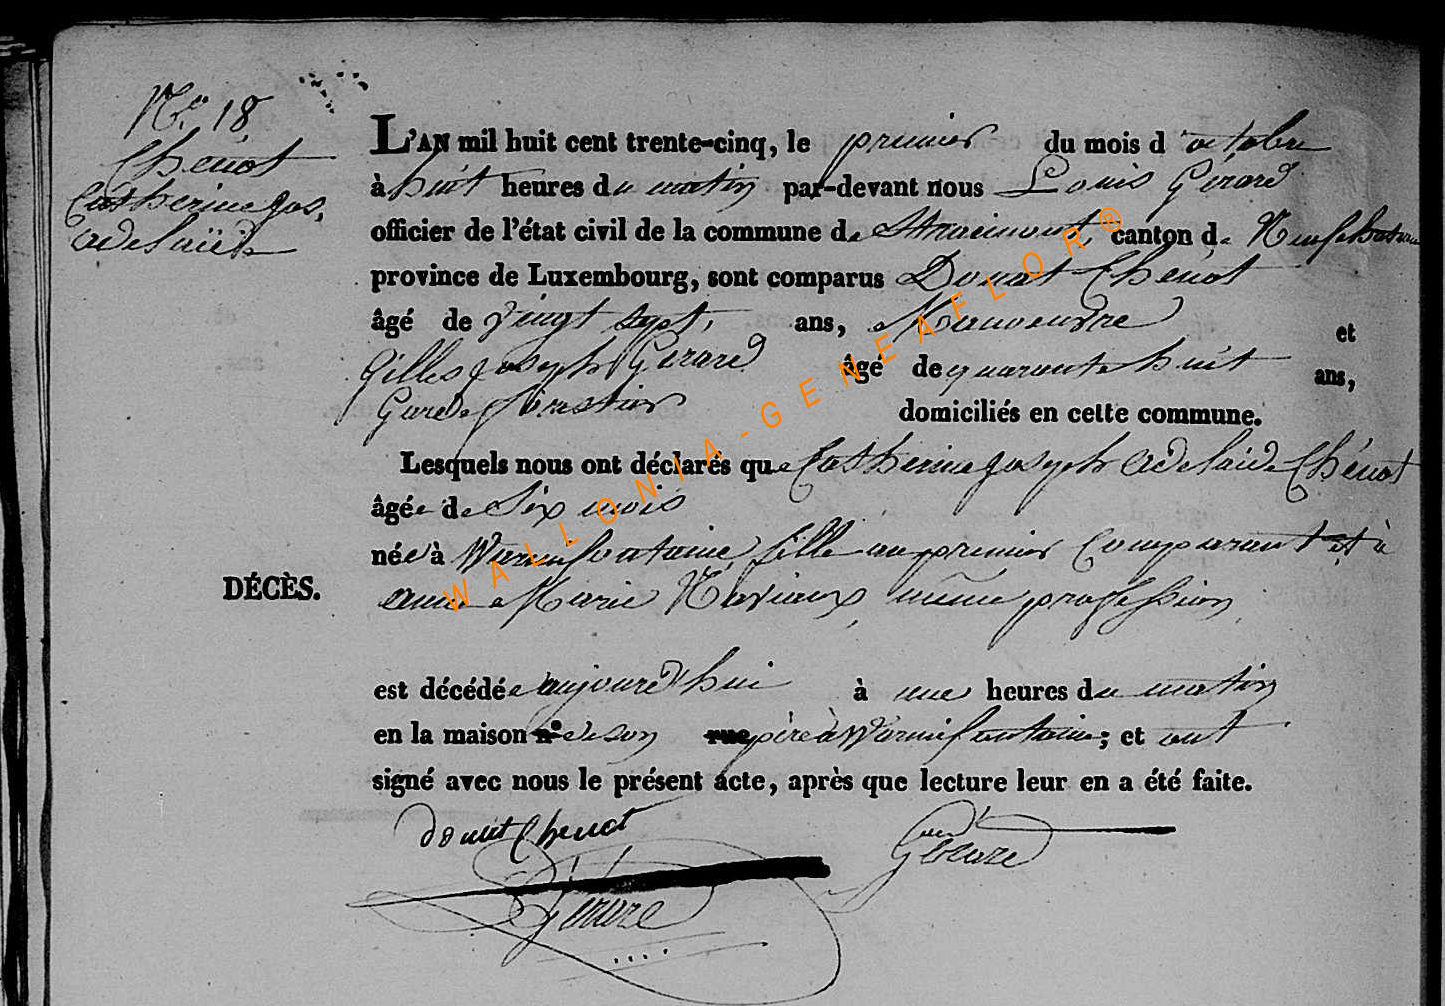 No. 18.
Chénot
Catherine Jos.
adelaïde
L'AN mil huit cent trente-cinq, le premier du mois d'octobre
à huit heures du matin par-devant nous Louis Gérard
officier de l'état civil de la commune de Straimont, canton de Neufchateau
province de Luxembourg, sont comparus Donat Chénot
âgé de vingt sept, ans, Manoeuvre et
Gilles joseph Gerard âgé de quarante huit ans,
Garde forestier domiciliés en cette commune.
Lesquels nous ont déclarés que Catherine joseph adelaide Chénot
âgée de Six mois
née à Warmifontaine, fille au premier Comparant et à
anne Marie Naviaux, même profession,
DÉCÈS.
est décédée aujourd'hui à une heures du matin
en la maison n° de son rue père à Warmifontaine; et ont
signé avec nous le présent acte, après que lecture leur en a été faite.
donat Chenot
Gérard
Gérard
WALLONIA-GENEAFLOR®